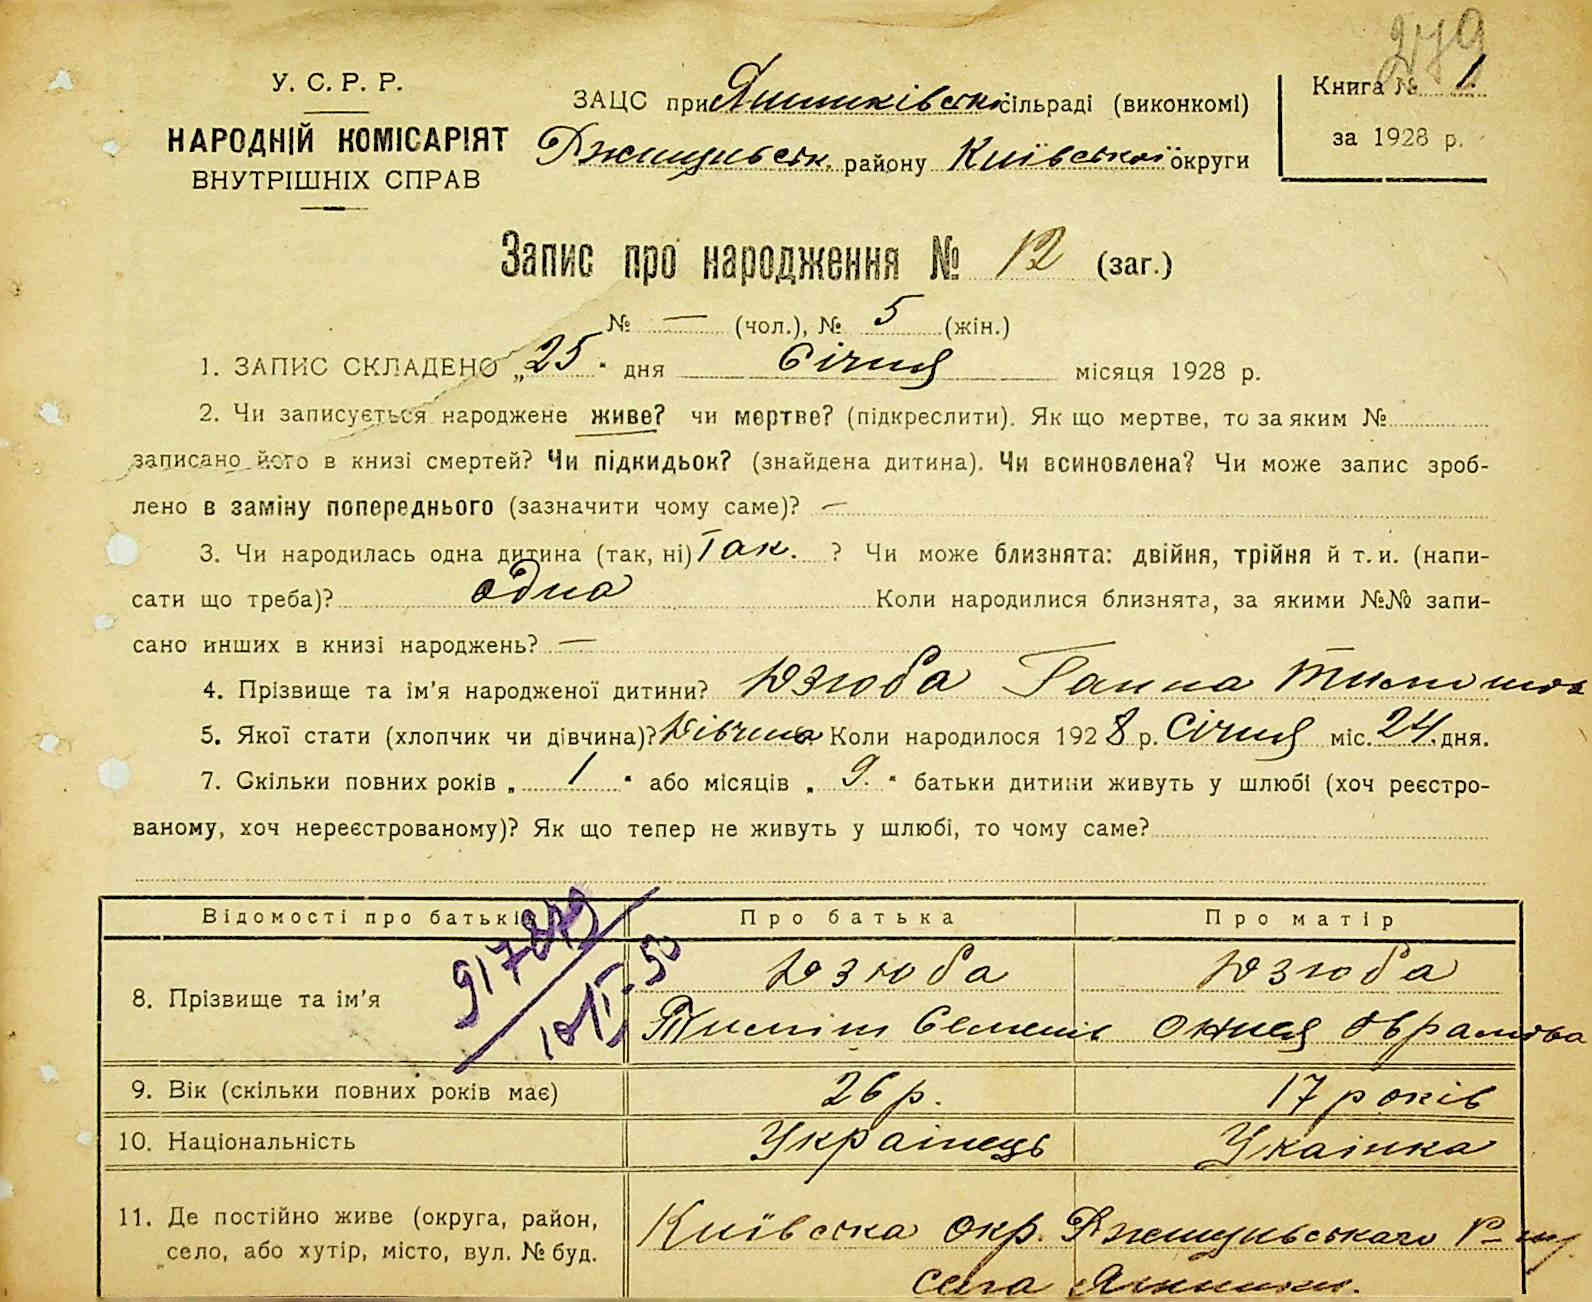 279
У. С. Р. Р.
НАРОДНІЙ КОМІСАРІЯТ
ВНУТРІШНІХ СПРАВ
ЗАЦС при сільраді (виконкомі)
Ржищівськ. району Київської округи
Книга № 1
за 1928 р.
Запис про народження № 12 (заг.)
№ — (чол.), № 5 (жін.)
1. ЗАПИС СКЛАДЕНО „25" дня Січня місяця 1928 р.
2. Чи записується народжене живе? чи мертве? (підкреслити). Як що мертве, то за яким №
записано його в книзі смертей? Чи підкидьок? (знайдена дитина). Чи всиновлена? Чи може запис зроб-
лено в заміну попереднього (зазначити чому саме)? —
3. Чи народилась одна дитина (так, ні) Так. ? Чи може близнята: двійня, трійня й т. и. (напи-
сати що треба)? одна Коли народилися близнята, за якими №№ запи-
сано инших в книзі народжень? —
4. Прізвище та ім'я народженої дитини? Дзюба Ганна
5. Якої стати (хлопчик чи дівчина)? Дівчина Коли народилося 1928 р. Січня міс. 24 дня.
7. Скільки повних років „ 1 " або місяців „ 9. " батьки дитини живуть у шлюбі (хоч реєстро-
ваному, хоч нереєстрованому)? Як що тепер не живуть у шлюбі, то чому саме?
Відомості про батьків Про батька Про матір
917879
8. Прізвище та ім'я Дзюба Дзюба
Тиміш Семенів Оврамова
9. Вік (скільки повних років має) 26 р. 17 років
10. Національність Українець Укаінка
11. Де постійно живе (округа, район, Київська окр. Ржищівського р-ну
село, або хутір, місто, вул. № буд. села